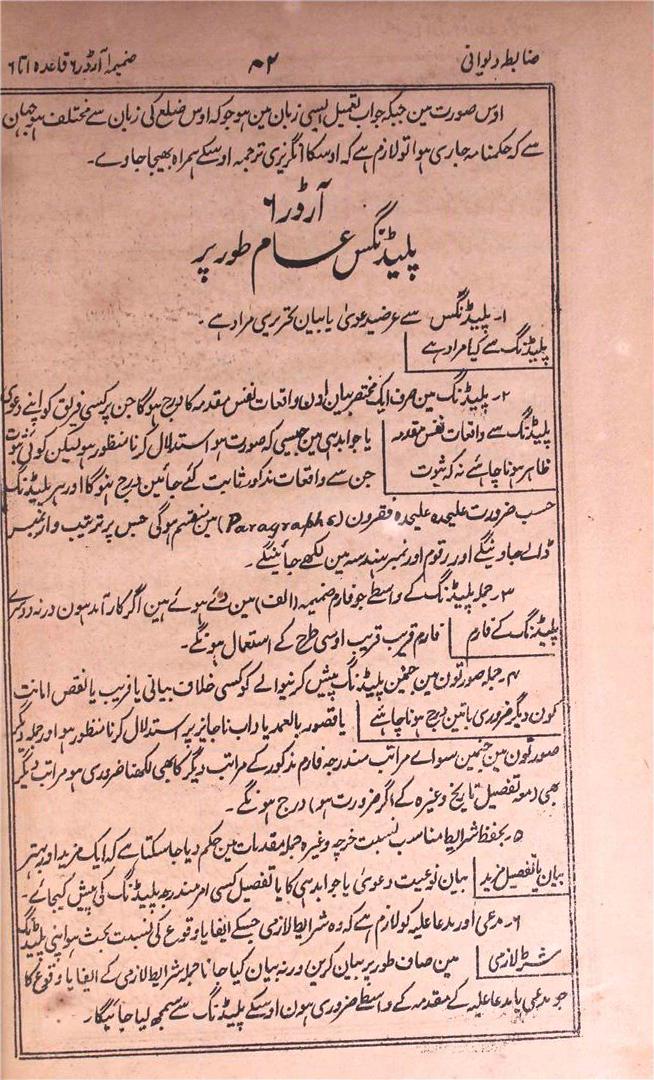 ضابطہ دیوانی ۸۰۲ ضمیمہ آرڈر ۶ قاعدہ ۱ تا ۶
اوس صورت مین جبکہ جواب تعمیل ایسی زبان مین ہو جو کہ اوس ضلع کی زبان سے مختلف ہو جہان
سے کہ حکمنامہ جاری ہوا تو لازم ہے کہ اوسکا انگریزی ترجمہ اوسکے ہمراہ بھیجا جاوے۔
آرڈر ۶
پلیڈنگس عام طور پر
۱۔ پلیڈنگس سے عرضیدعویٰ یا بیان تحریری مراد ہے۔
پلیڈنگ سے کیا مراد ہے
۲۔ پلیڈنگ مین صرف ایک مختصر بیان اون واقعات نفس مقدمہ کا درج ہوگا جن پر کسی فریق کو اپنے دعویٰ
پلیڈنگ سے واقعات نفس مقدمہ یا جوابدہی مین جیسی کہ صورت ہو استدلال کرنا منظور ہو لیکن کوئی ثبوت
ظاہر ہونا چاہئے نہ کہ ثبوت جن سے واقعات مذکور ثابت کئے جائین درج نہوگا اور ہر پلیڈنگ
حسب ضرورت علیحدہ علیحدہ فقرون (Paragraphs) مین منقسم ہوگی جس پر ترتیب وار نمبر
ڈالے جاوینگے اور رقوم اور نمبر ہندسہ مین لکھے جائینگے۔
۳۔ جملہ پلیڈنگ کے واسطے جو فارم ضمیمہ (الف) مین دئے ہوئے ہین اگر کارآمد ہون ورنہ دوسرے
پلیڈنگ کے فارم فارم قریب قریب اوسی طرح کے استعمال ہونگے۔
۴۔ جملہ صورتون مین جنمین پلیڈنگ پیش کرنیوالے کو کسی خلاف بیانی یا فریب یا نقص امانت
کون دیگر ضروری باتین درج ہونا چاہئے یا قصور بالعمد یا داب ناجائز پر استدلال کرنا منظور ہو اور جملہ دیگر
صورتون مین جنمین سواے مراتب مندرجہ فارم مذکور کے مراتب دیگر کا بھی لکھنا ضروری ہو مراتب دیگر
بھی (معہ تفصیل تاریخ وغیرہ کے اگر ضرورت ہو) درج ہونگے۔
۵۔ بحفظ شرایط مناسب نسبت خرچہ وغیرہ جملہ مقدمات مین حکم دیا جاسکتا ہے کہ ایک مزید اور بہتر
بیان یا تفصیل مزید بیان نوعیت دعویٰ یا جوابدہی کا یا تفصیل کسی امر مندرجہ پلیڈنگ کی پیش کیجائے۔
۶۔ مدعی اور مدعاعلیہ کو لازم ہے کہ وہ شرایط لازمی جسکے ایفا یا وقوع کی نسبت بحث ہو اپنی پلیڈنگ
شرط لازمی مین صاف طور پر بیان کرین ورنہ بیان کیا جانا جملہ شرایط لازمی کے ایفا یا وقوع کا
جو مدعی یا مدعاعلیہ کے مقدمہ کے واسطے ضروری ہون اوسکے پلیڈنگ سے سمجھ لیا جائیگا۔